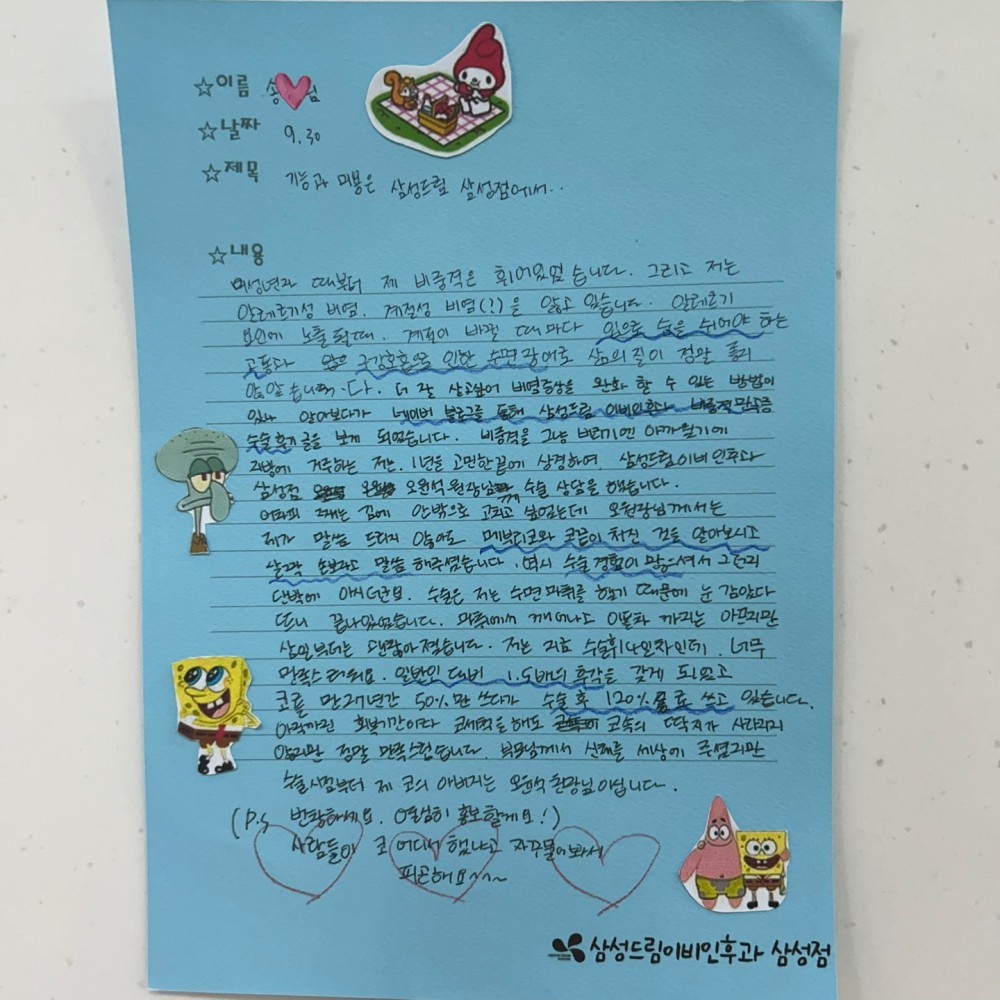 ☆이름 송♥님
☆날짜 9.30
☆제목 기능과 미용은 삼성드림 삼성점에서..
☆내용
미성년자 때부터 제 비중격은 휘어있었습니다. 그리고 저는
알레르기성 비염, 계절성 비염(?)을 앓고 있습니다. 알레르기
요인에 노출될때, 계절이 바뀔 때마다 입으로 숨을 쉬어야 하는
고통과 구강호흡으로 인한 수면장애로 삶의 질이 정말 좋지
않았습니다. 더 잘 살고싶어 비염증상을 완화 할 수 있는 방법이
있나 알아보다가 네이버 블로그를 통해 삼성드림 이비인후과 비중격만곡증
수술후기 글을 보게 되었습니다. 비중격을 그냥 버리기엔 아까웠기에
지방에 거주하는 저는, 1년을 고민한끝에 상경하여 삼성드림이비인후과
삼성점 오원석원장님께 수술 상담을 했습니다.
어차피 째는 김에 안밖으로 고치고 싶었는데 오원장님께서는
제가 말씀 드리지 않아도 메부리코와 코끝이 처진 것을 알아보시고
살짝 손보라고 말씀 해주셨습니다. 역시 수술경험이 많으셔서 그런지
단박에 아시더군요. 수술은 저는 수면마취를 했기 때문에 눈 감았다
뜨니 끝나있었습니다. 마취에서 깨어나고 이틀차 까지는 아프지만
삼일부터는 괜찮아졌습니다. 저는 지금 수술후 4일차인데, 너무
만족스러워요. 일반인 대비 1.5배의 후각을 갖게 되었고
코를 만27년간 50%만 쓰다가 수술 후 120%로 쓰고 있습니다.
아직까진 회복기간이라 코세척을 해도 코속의 딱지가 사라지지
않지만 정말 만족스럽습니다. 부모님께서 신체를 세상에 주셨지만
수술시점부터 제 코의 아버지는 오원석원장님이십니다.
(P.S 번창하세요. 열심히 홍보할게요!)
사람들이 코 어디서 했냐고 자꾸물어봐서
피곤해요~~
삼성드림이비인후과 삼성점